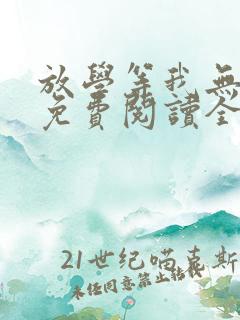 放學等我無
免費閱讀全
21世纪喵克斯
未经同意禁止转载